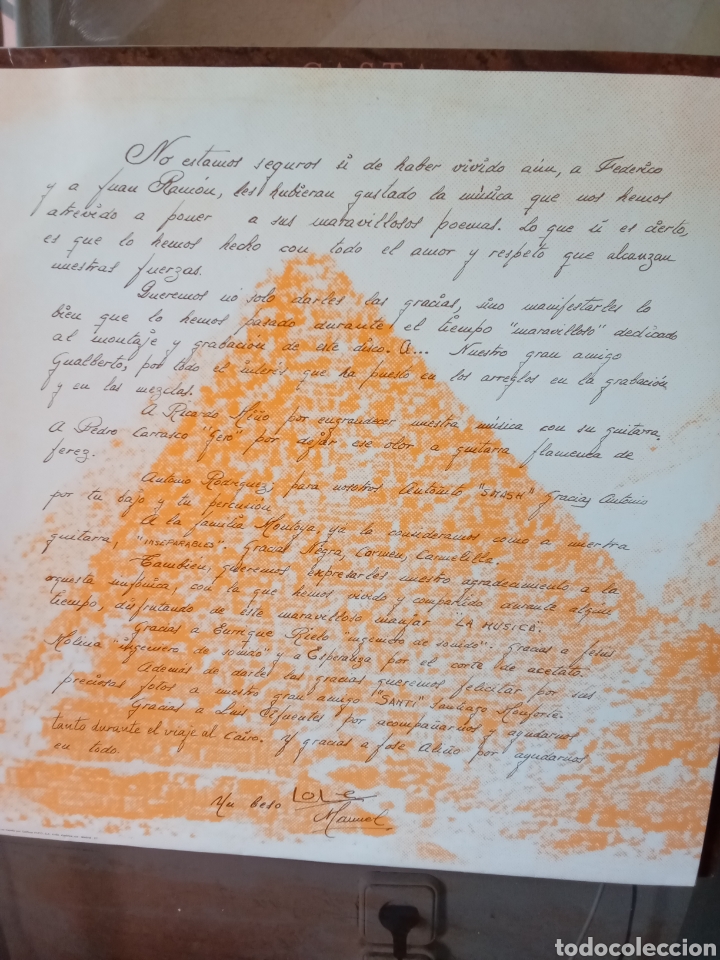 CASTA
No estamos seguros si de haber vivido aún, a Federico
y a Juan Ramón, les hubieran gustado la música que nos hemos
atrevido a poner a sus maravillosos poemas. Lo que si es cierto,
es que lo hemos hecho con todo el amor y respeto que alcanzan
nuestras fuerzas.
Queremos no solo darles las gracias, sino manifestarles lo
bien que lo hemos pasado durante el tiempo "maravilloso" dedicado
al montaje y grabación de este disco. A... Nuestro gran amigo
Gualberto, por todo el interés que ha puesto en los arreglos en la grabación
y en las mezclas.
A Ricardo Miño por engrandecer nuestra música con su guitarra,
A Pedro Carrasco "Gero" por dejar ese olor a guitarra flamenca de
Jerez.
Antonio Rodriguez, para nosotros Antoñito "SMASH" Gracias Antonio
por tu bajo y tu percusión
A la familia Montoya, ya la consideramos como a nuestra
guitarra, "INSEPARABLES". Gracias Negra, Carmen, Carmelilla.
Tambien, queremos expresarles nuestro agradecimiento a la
orquesta sinfónica, con la que hemos vivido y compartido durante algún
tiempo, disfrutando de este maravilloso manjar LA MUSICA.
Gracias a Enrique Rielo "ingeniero de sonido". Gracias a Jesus
Molina "ingeniero de sonido" y a Esperanza por el corte de acetato.
Ademas de darles las gracias queremos felicitar por sus
preciosas fotos a nuestro gran amigo "SANTI" Santiago Monforte.
Gracias a Luis Cifuentes por acompañarnos y ayudarnos
tanto durante el viaje al Cairo. Y gracias a Jose Aliño por ayudarnos
en todo.
Un beso Lole
Manuel
todocoleccion